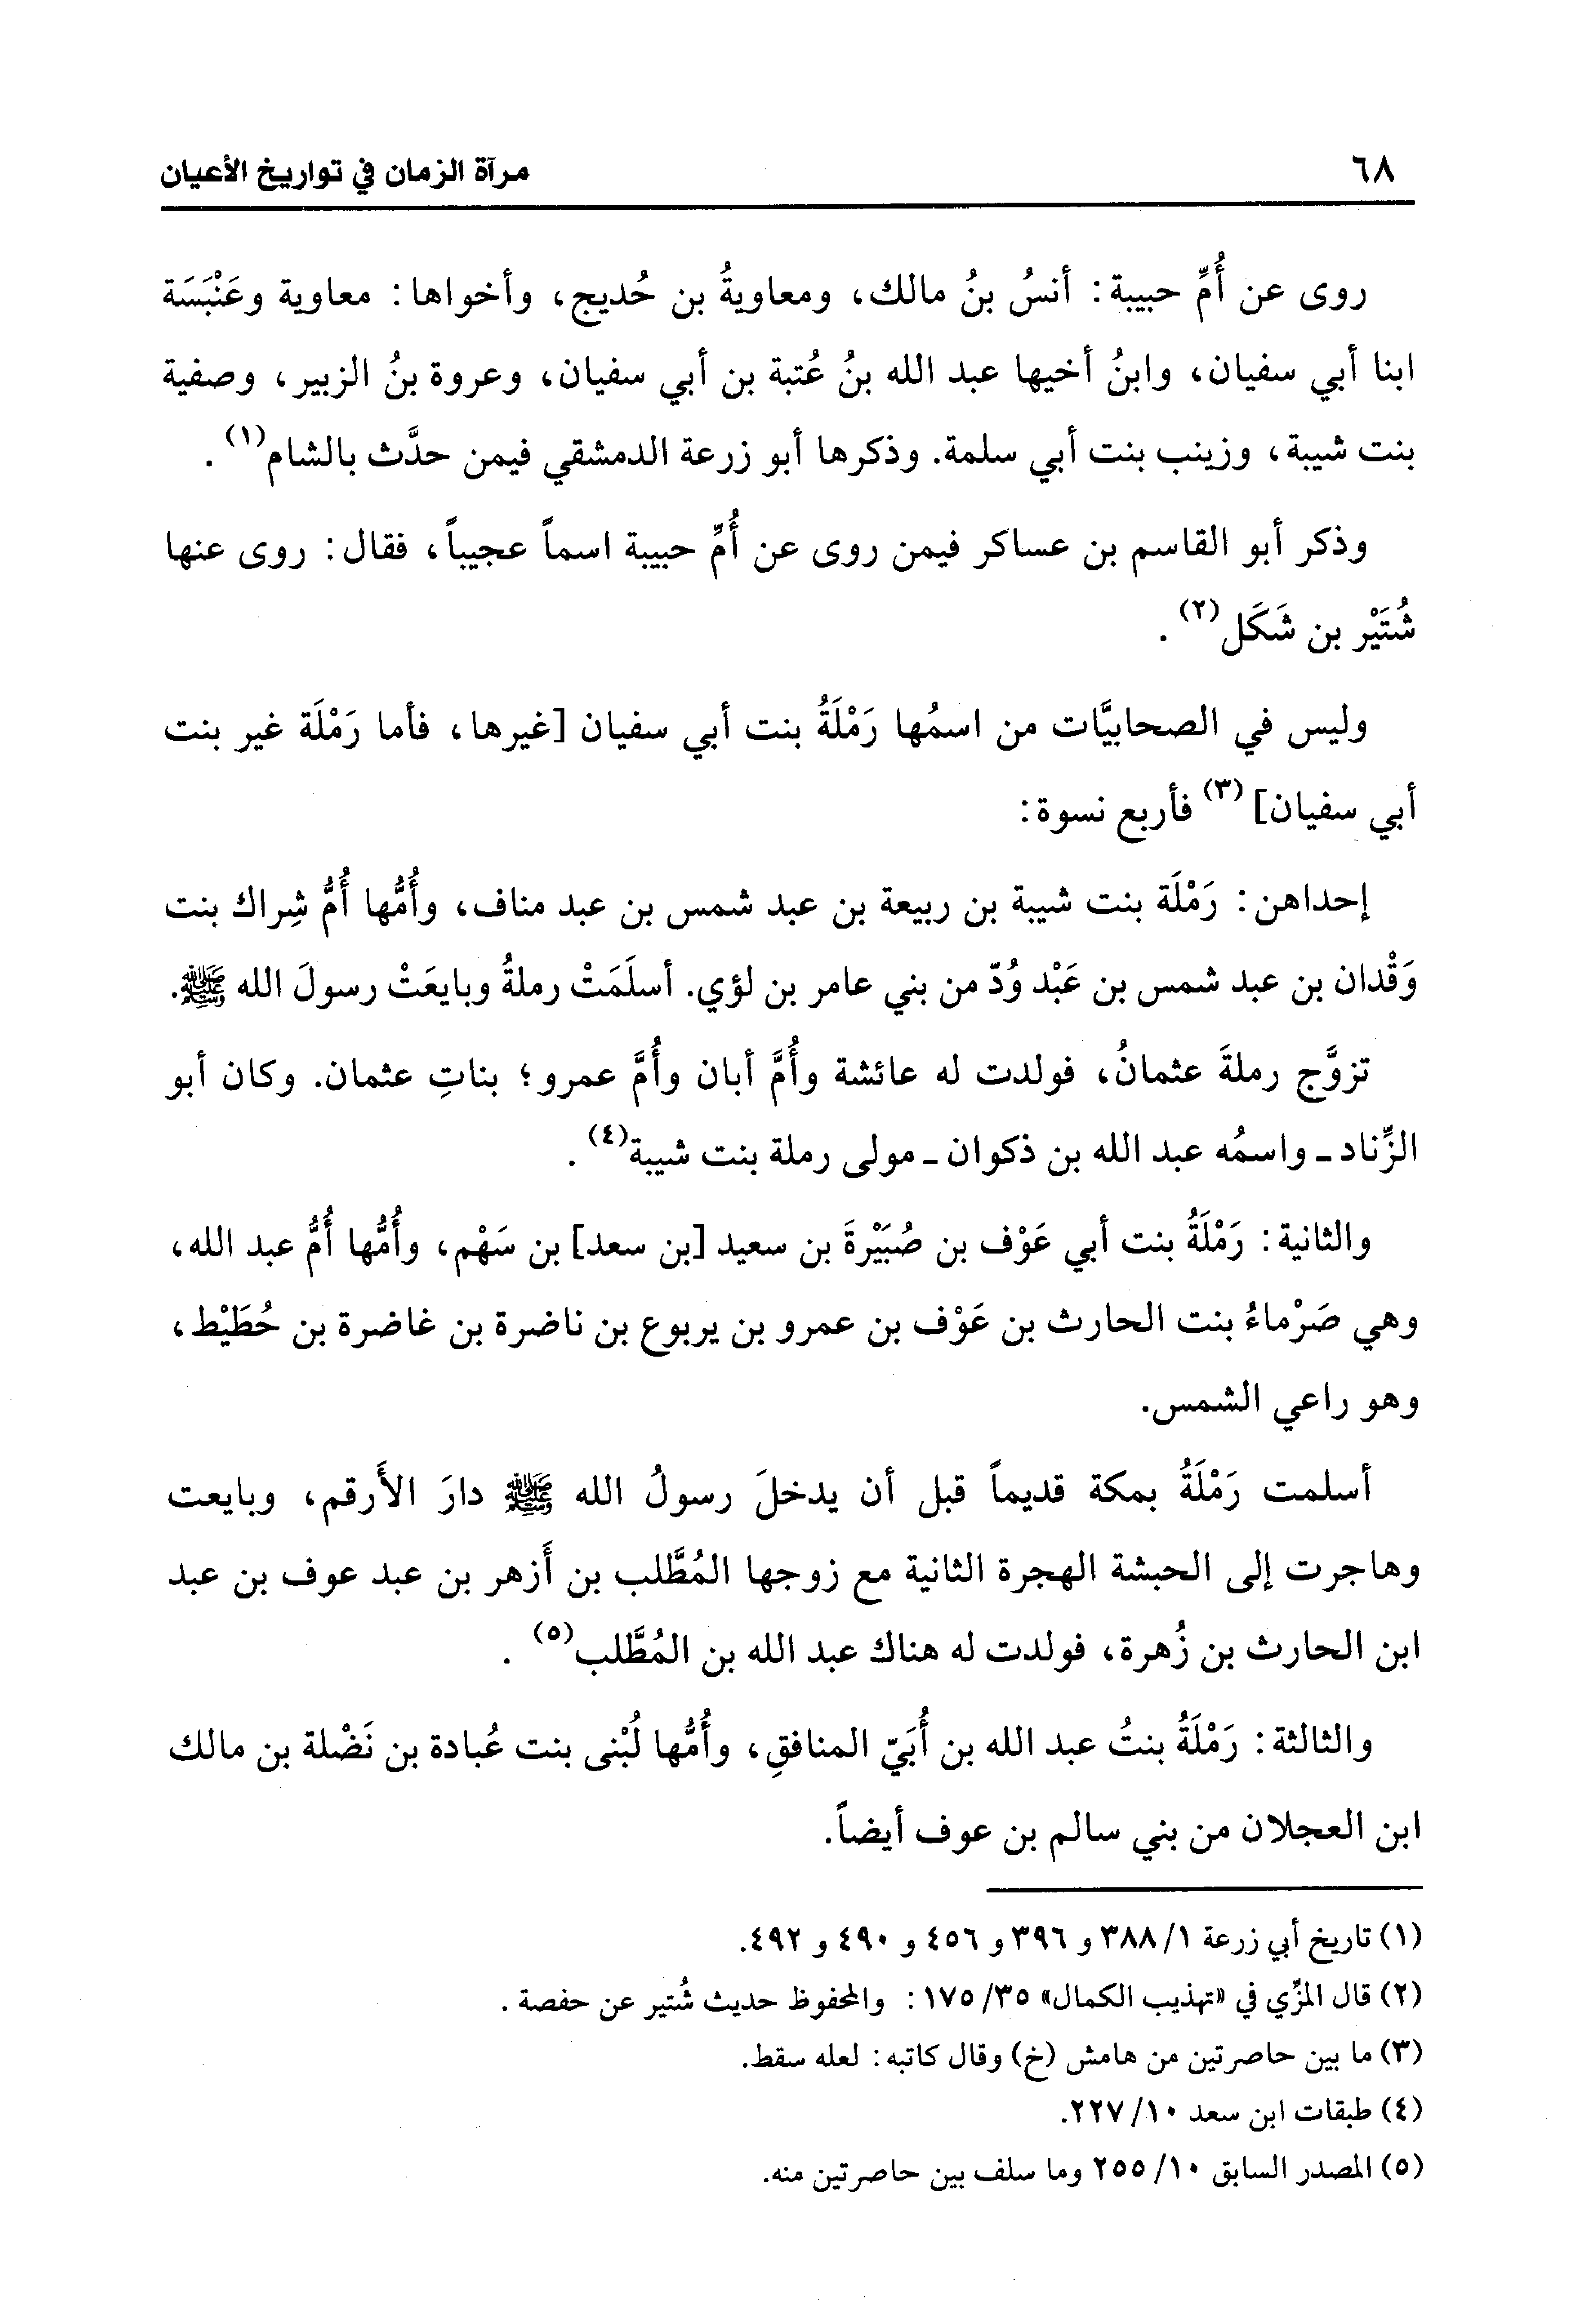 ٦٨
مرآة الزمان في تواريخ الأعيان
روى عن أُمِّ حبيبة: أنسُ بنُ مالك، ومعاويةُ بن حُديج، وأخواها: معاوية وعَنْبَسَة
ابنا أبي سفيان، وابنُ أخيها عبد الله بنُ عُتبة بن أبي سفيان، وعروة بنُ الزبير، وصفية
بنت شيبة، وزينب بنت أبي سلمة. وذكرها أبو زرعة الدمشقي فيمن حدَّث بالشام(١).
وذكر أبو القاسم بن عساكر فيمن روى عن أُمِّ حبيبة اسماً عجيباً، فقال: روى عنها
شُتَيْر بن شَكَل(٢).
وليس في الصحابيَّات من اسمُها رَمْلَةُ بنت أبي سفيان [غيرها، فأما رَمْلَة غير بنت
أبي سفيان](٣) فأربع نسوة:
إحداهن: رَمْلَة بنت شيبة بن ربيعة بن عبد شمس بن عبد مناف، وأُمُّها أُمُّ شِراك بنت
وَقْدان بن عبد شمس بن عَبْد وُدّ من بني عامر بن لؤي. أسلَمَتْ رملةُ وبايعَتْ رسولَ الله ﷺ.
تزوَّج رملةَ عثمانُ، فولدت له عائشة وأُمَّ أبان وأُمَّ عمرو؛ بناتِ عثمان. وكان أبو
الزِّناد ـ واسمُه عبد الله بن ذكوان ـ مولى رملة بنت شيبة(٤).
والثانية: رَمْلَةُ بنت أبي عَوْف بن صُبَيْرةَ بن سعيد [بن سعد] بن سَهْم، وأُمُّها أُمُّ عبد الله،
وهي صَرْماءُ بنت الحارث بن عَوْف بن عمرو بن يربوع بن ناضرة بن غاضرة بن حُطَيْط،
وهو راعي الشمس.
أسلمت رَمْلَةُ بمكة قديماً قبل أن يدخلَ رسولُ الله ﷺ دارَ الأَرقم، وبايعت
وهاجرت إلى الحبشة الهجرة الثانية مع زوجها المُطَّلب بن أَزهر بن عبد عوف بن عبد
ابن الحارث بن زُهرة، فولدت له هناك عبد الله بن المُطَّلب(٥).
والثالثة: رَمْلَةُ بنتُ عبد الله بن أُبَيّ المنافقِ، وأُمُّها لُبْنى بنت عُبادة بن نَضْلة بن مالك
ابن العجلان من بني سالم بن عوف أيضاً.
(١) تاريخ أبي زرعة ١/ ٣٨٨ و ٣٩٦ و ٤٥٦ و ٤٩٠ و ٤٩٢.
(٢) قال المزِّي في «تهذيب الكمال» ٣٥/ ١٧٥: والمحفوظ حديث شُتير عن حفصة.
(٣) ما بين حاصرتين من هامش (خ) وقال كاتبه: لعله سقط.
(٤) طبقات ابن سعد ١٠/ ٢٢٧.
(٥) المصدر السابق ١٠/ ٢٥٥ وما سلف بين حاصرتين منه.